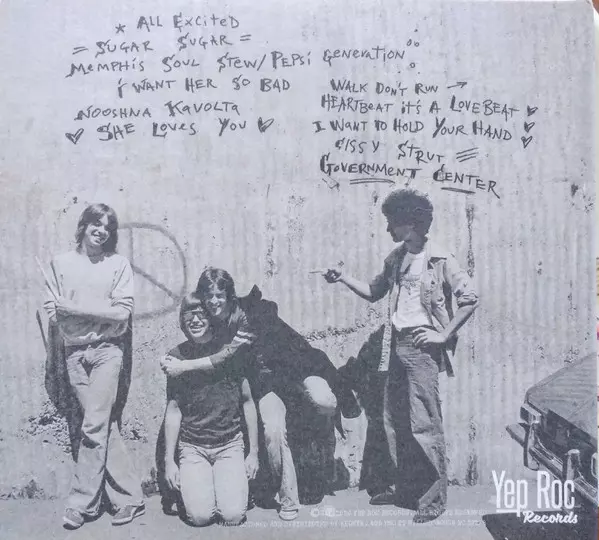 * ALL EXCITED
= SUGAR SUGAR =
MEMPHIS SOUL STEW/PEPSI GENERATION
I WANT HER SO BAD
NOOSHNA KAVOLTA
♥ SHE LOVES YOU ♥
WALK DON'T RUN →
HEARTBEAT IT'S A LOVEBEAT ♥
I WANT TO HOLD YOUR HAND ♥
CISSY STRUT
GOVERNMENT CENTER
Yep Roc
Records
YEP ROC RECORDS